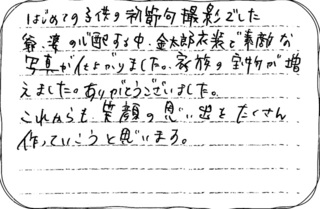 はじめての子供の初節句撮影でした
爺、婆の心配する中、金太郎衣装で素敵な
写真が仕上がりました。家族の宝物が増
えました。ありがとうございました。
これからも笑顔の思い出をたくさん
作っていこうと思います。